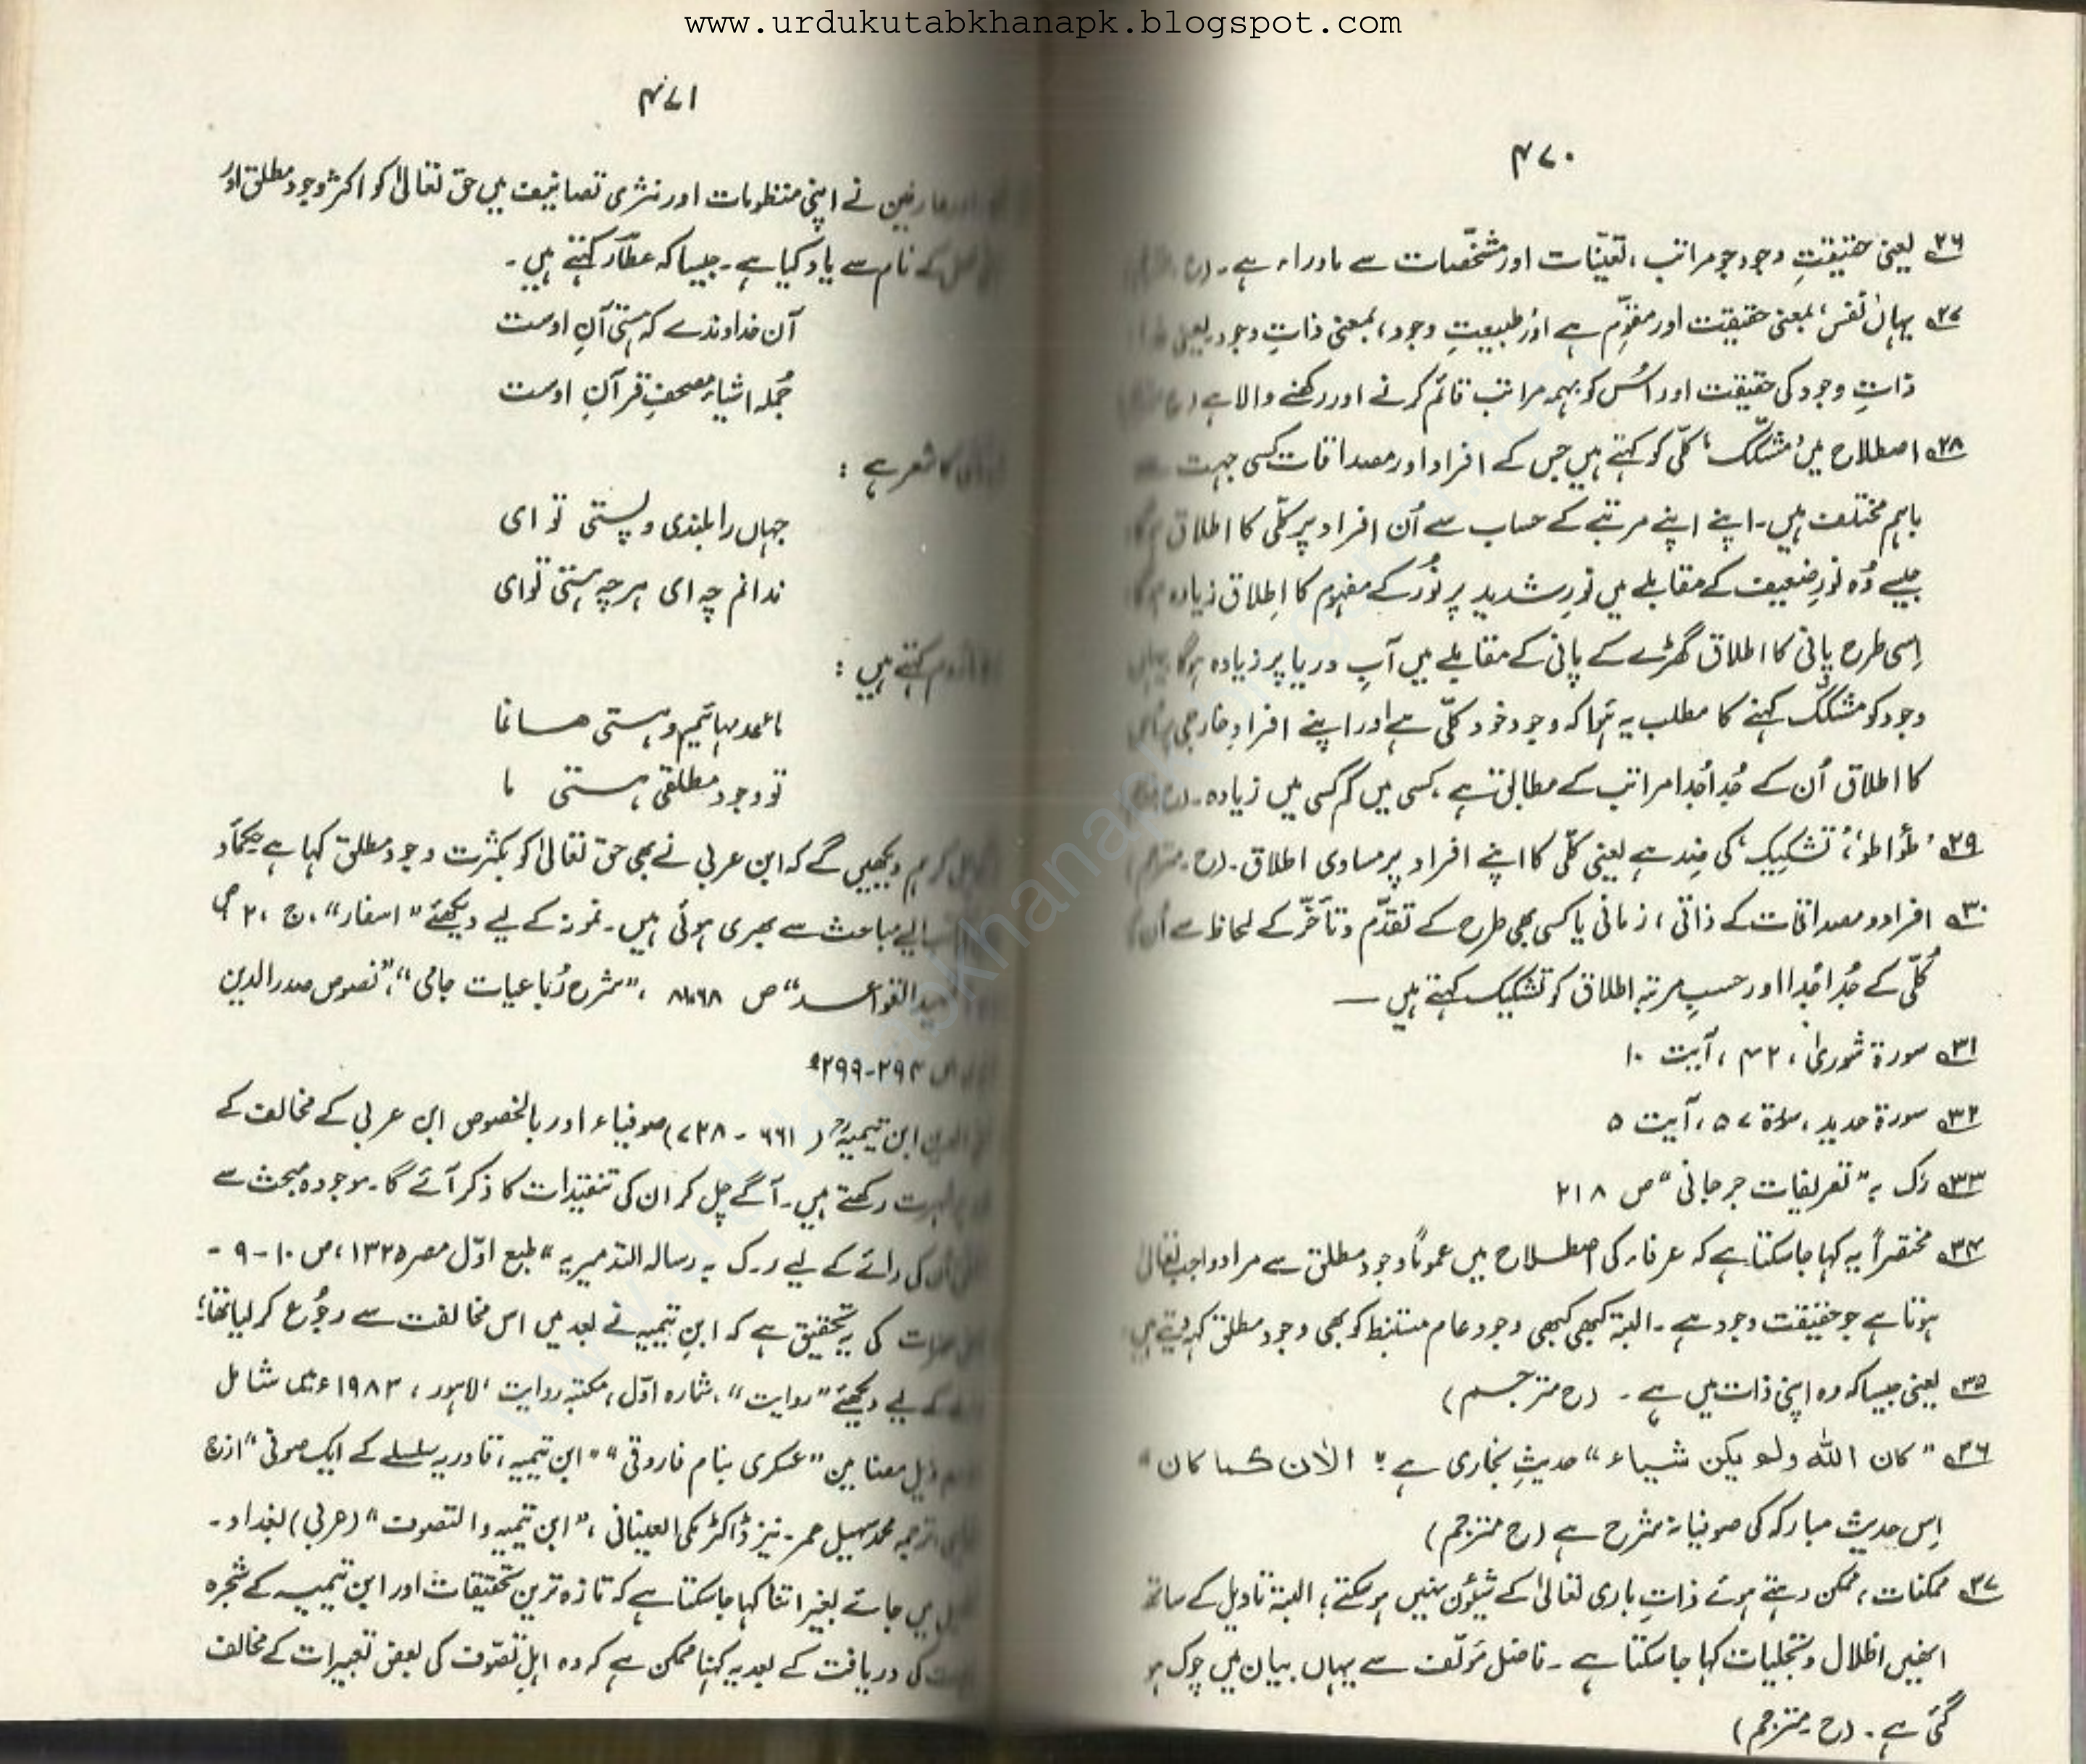 www.urdukutabkhanapk.blogspot.com
۴۷۰
۲۶ یعنی حقیقتِ وجود جو مراتب، تعیّنات اور مشخّصات سے ماوراء ہے۔ (ح
۲۷ یہاں ’نفس‘ بمعنی حقیقت اور مقوّم ہے اور طبیعتِ وجود، بمعنی ذاتِ وجود یعنی
ذاتِ وجود کی حقیقت اور اُس کو بہمہ مراتب قائم کرنے اور رکھنے والا ہے (ح
۲۸ اصطلاح میں ’مشکّک‘ کلّی کو کہتے ہیں جس کے افراد اور مصداقات کسی جہت سے
باہم مختلف ہیں۔ اپنے اپنے مرتبے کے حساب سے اُن افراد پر کلّی کا اطلاق ہوگا
جیسے وُہ نورِ ضعیف کے مقابلے میں نورِ شدید پر نُور کے مفہوم کا اِطلاق زیادہ ہوگا
اِسی طرح پانی کا اطلاق گھڑے کے پانی کے مقابلے میں آبِ دریا پر زیادہ ہوگا یہاں
وجود کو مشکّک کہنے کا مطلب یہ ہُوا کہ وجود خود کلّی ہے اور اپنے افرادِ خارجی پر اس
کا اطلاق اُن کے جُدا جُدا مراتب کے مطابق ہے، کسی میں کم کسی میں زیادہ۔ (ح
۲۹ ’طوأطو‘، ’تشکیک‘ کی ضِد ہے یعنی کلّی کا اپنے افراد پر مساوی اطلاق۔ (ح۔ مترجم)
۳۰ افراد و مصداقات کے ذاتی، زمانی یا کسی بھی طرح کے تقدّم و تأخّر کے لحاظ سے اُن
کُلّی کے جُدا جُدا اور حسبِ مرتبہ اطلاق کو تشکیک کہتے ہیں —
۳۱ سورۃ شوریٰ، ۴۲، آیت ۱۰
۳۲ سورۃ حدید، سورۃ ۵۷، آیت ۵
۳۳ رک بہ ”تعریفات جرجانی“ ص ۲۱۸
۳۴ مختصراً یہ کہا جا سکتا ہے کہ عرفاء کی اصطلاح میں عموماً وجود مطلق سے مراد واجب تعالیٰ
ہوتا ہے جو حقیقت وجود ہے۔ البتہ کبھی کبھی وجود عام منبسط کو بھی وجود مطلق کہہ دیتے ہیں
۳۵ یعنی جیسا کہ وہ اپنی ذات میں ہے۔ (ح مترجم)
۳۶ ”کان اللہ ولم یکن شیاء“ حدیثِ بخاری ہے؛ الاٰن کما کان“
اِس حدیث مبارکہ کی صوفیانہ شرح ہے (ح مترجم)
۳۷ ممکنات، ممکن رہتے ہوئے ذاتِ باری تعالیٰ کے شیُون نہیں ہو سکتے؛ البتہ تاویل کے ساتھ
انھیں اظلال و تجلیات کہا جا سکتا ہے۔ فاضل مؤلّف سے یہاں بیان میں چوک ہو
گئی ہے۔ (ح مترجم)
۴۷۱
اور عارفین نے اپنی منظومات اور نثری تصانیف میں حق تعالیٰ کو اکثر وجود مطلق اور
کے نام سے یاد کیا ہے۔ جیسا کہ عطّار کہتے ہیں۔
آن خداوندے کہ ہستی آنِ اوست
جُملہ اشیاء مصحفِ قرآنِ اوست
کا شعر ہے :
جہاں را بلندی و پستی تو ای
ندانم چہ ای ہر چہ ہستی تو ای
کہتے ہیں :
ما عدمہائیم و ہستی ھا نما
تو وجود مطلقی ہستی ما
کر ہم دیکھیں گے کہ ابن عربی نے بھی حق تعالیٰ کو بکثرت وجود مطلق کہا ہے حکماء و
مباحث سے بھری ہوئی ہیں۔ نمونہ کے لیے دیکھئے ”اسفار“، ج ۲، ص
القواعد“ ص ، ”شرح رُباعیات جامی“، ”نصوص صدر الدین
ص ۲۹۴-۲۹۹
الدین ابن تیمیہؒ (۶۶۱ - ۷۲۸) صوفیاء اور بالخصوص ابن عربی کے مخالف کے
شہرت رکھتے ہیں۔ آگے چل کر ان کی تنقیدات کا ذکر آئے گا۔ موجودہ مبحث سے
اُن کی رائے کے لیے ر۔ک بہ رسالہ التدمیریہ“ طبع اوّل مصر ۱۳۲۵، ص ۱۰-۹ -
حضرات کی یہ تحقیق ہے کہ ابنِ تیمیہ نے بعد میں اس مخالفت سے رجُوع کر لیا تھا؛
کے لیے دیکھئے ”روایت“، شمارہ اوّل، مکتبہ روایت، لاہور، ۱۹۸۳ء میں شامل
ذیل مضامین ”عسکری بنام فاروقی“ ”ابن تیمیہ، قادریہ سلسلے کے ایک صوفی“ ازج
ترجمہ محمد سہیل عمر۔ نیز ڈاکٹر مکی العینانی، ”ابن تیمیہ و التصوف“ (عربی) بغداد۔
میں جائے بغیر اتنا کہا جا سکتا ہے کہ تازہ ترین تحقیقات اور ابن تیمیہ کے شجرہ
کی دریافت کے بعد یہ کہنا ممکن ہے کہ وہ اہلِ تصوّف کی بعض تعبیرات کے مخالف